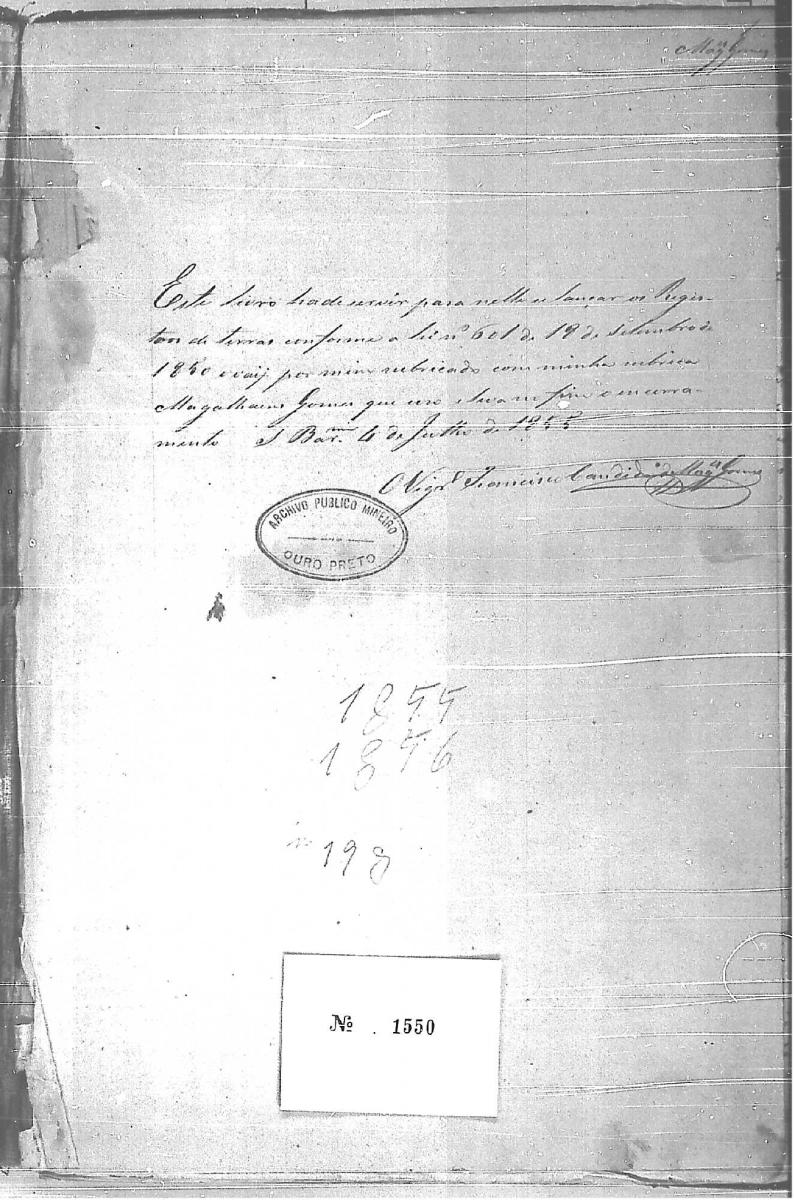 Mag. Gomes
Este livro hade servir para nelle se lançar os Regis-
tos de terras conforme a lei nº 601 de 18 de Setembro de
1850 e vai por mim rubricado com minha rubrica
Magalhaens Gomes que uso e leva no fim o encerra-
mento S Bar.ª 4 de Julho de 1855
O Vigrº Francisco Candido de Mag.es Gomes
ARCHIVO PUBLICO MINEIRO
OURO PRETO
1855
1856
nº 198
Nº . 1550